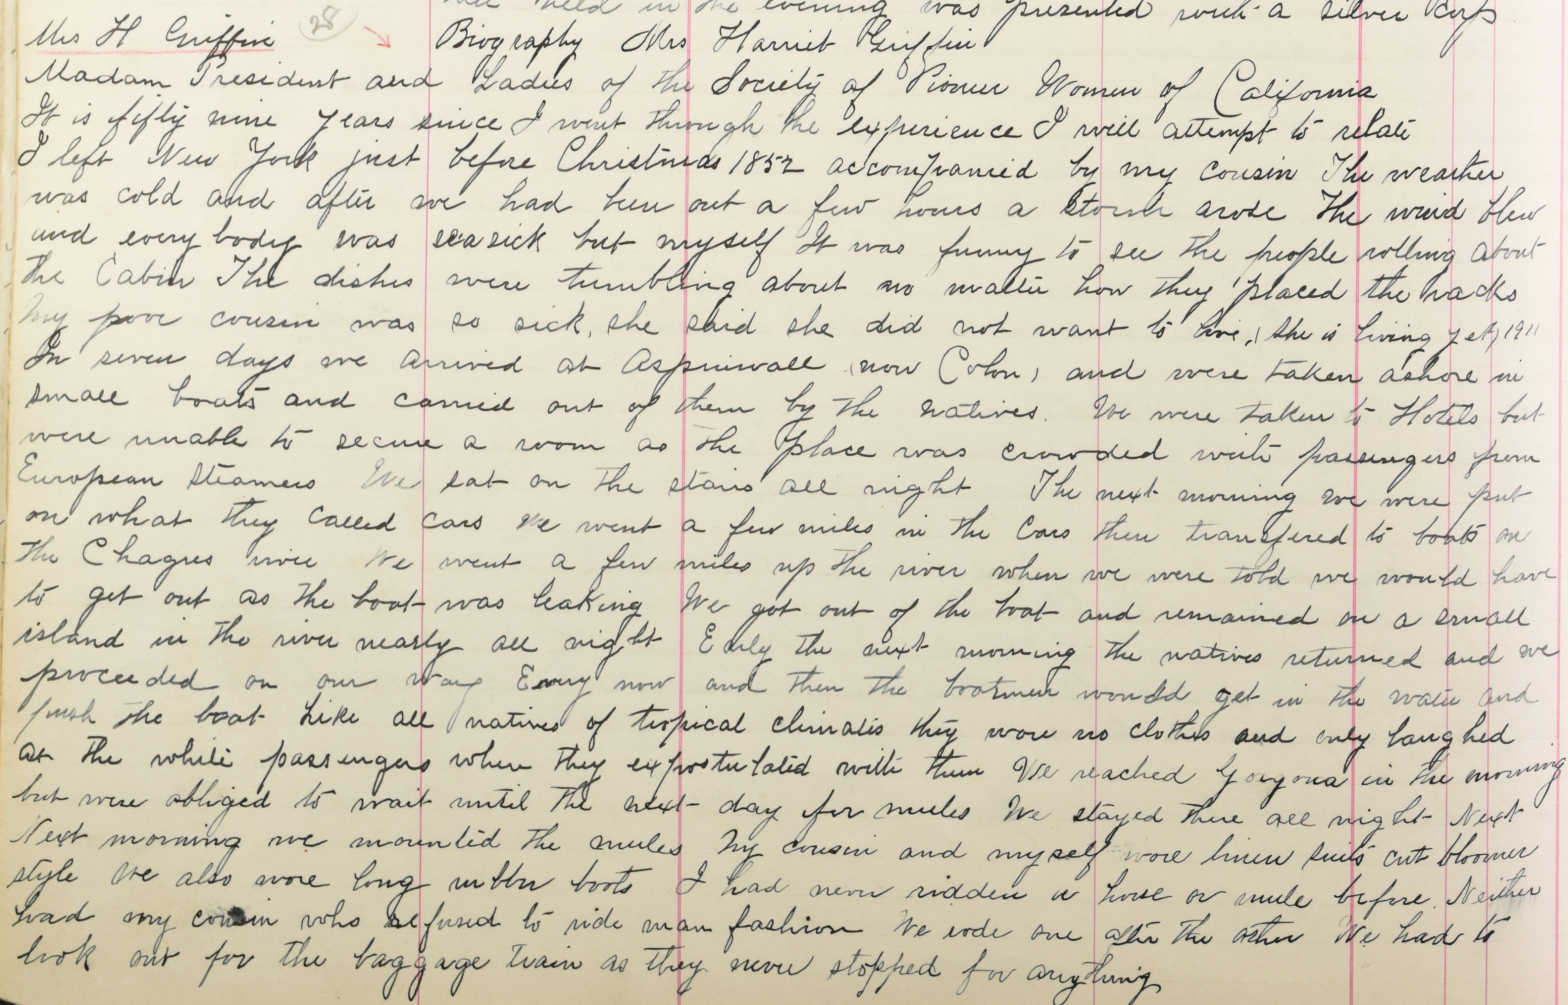 held in the evening was presented with a silver cup
Mrs H Griffin 28 Biography Mrs Harriet Griffin
Madam President and Ladies of the Society of Pioneer Women of California
It is fifty nine years since I went through the experience I will attempt to relate
I left New York just before Christmas 1852 accompanied by my cousin The weather
was cold and after we had been out a few hours a storm arose The wind blew
and every body was seasick but myself It was funny to see the people rolling about
the Cabin The dishes were tumbling about no matter how they placed the racks
My poor cousin was so sick, she said she did not want to live, (she is living yet) 1911
In seven days we arrived at Aspinwall (now Colon) and were taken ashore in
small boats and carried out of them by the natives. We were taken to Hotels but
were unable to secure a room as the place was crowded with passengers from
European Steamers We sat on the stairs all night The next morning we were put
on what they called cars We went a few miles in the Cars then transfered to boats on
the Chagres river We went a few miles up the river when we were told we would have
to get out as the boat was leaking We got out of the boat and remained on a small
island in the river nearly all night Early the next morning the natives returned and we
proceeded on our way Every now and then the boatmen would get in the water and
push the boat Like all natives of tropical climates they wore no clothes and only laughed
at the white passengers when they expostulated with them We reached Gorgona in the morning
but were obliged to wait until the next day for mules We stayed there all night Next
Next morning we mounted the mules My cousin and myself wore linen suits cut bloomer
style We also wore long rubber boots I had never ridden a horse or mule before. Neither
had my cousin who refused to ride man fashion We rode one after the other We had to
look out for the baggage train as they never stopped for anything